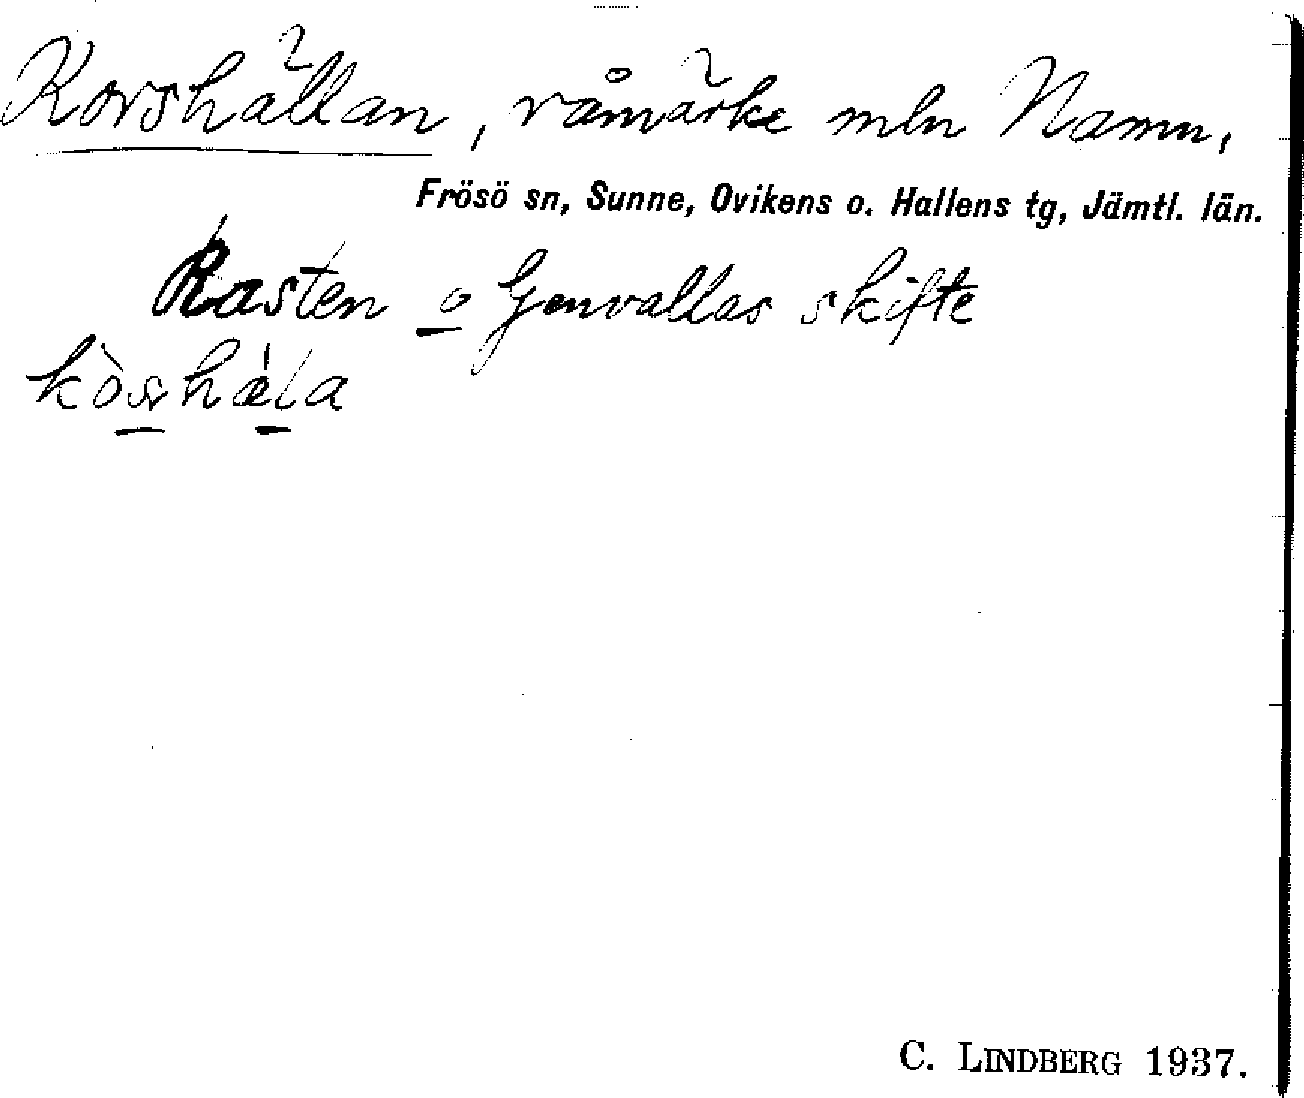 Korshällan, råmärke mln Namn,
Frösö sn, Sunne, Ovikens o. Hallens tg, Jämtl. län.
Rasten o Genvallas skifte
C. LINDBERG 1937.